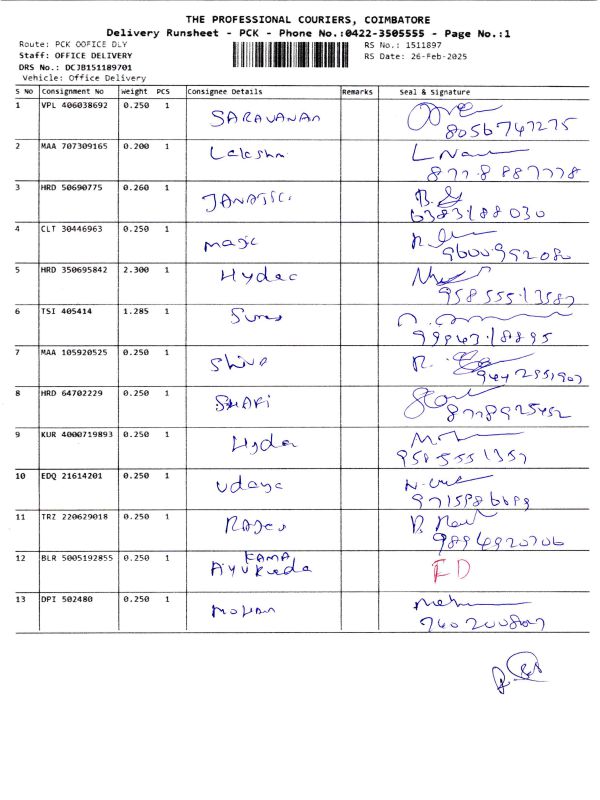 THE PROFESSIONAL COURIERS, COIMBATORE
Delivery Runsheet - PCK - Phone No.:0422-3505555 - Page No.:1
Route: PCK OOFICE DLY RS No.: 1511897
Staff: OFFICE DELIVERY RS Date: 26-Feb-2025
DRS No.: DCJB151189701
Vehicle: Office Delivery
S No Consignment No Weight PCS Consignee Details Remarks Seal & Signature
1 VPL 406038692 0.250 1 SARAVANAN
8056747275
2 MAA 707309165 0.200 1 L Nam
8778887778
3 HRD 50690775 0.260 1
6383188030
4 CLT 30446963 0.250 1 magic
9600992080
5 HRD 350695842 2.300 1 Hydec
6 TSI 405414 1.285 1
9994318895
7 MAA 105920525 0.250 1 Shiva
8 HRD 64702229 0.250 1
9 KUR 4000719893 0.250 1 Hyder
10 EDQ 21614201 0.250 1 Udaya
11 TRZ 220629018 0.250 1
9894920706
12 BLR 5005192855 0.250 1 KAMA FD
Ayurveda
13 DPI 502480 0.250 1 Mohan